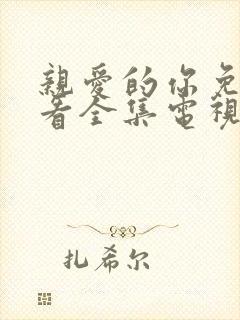 親愛的你免
看全集電視
扎希尔